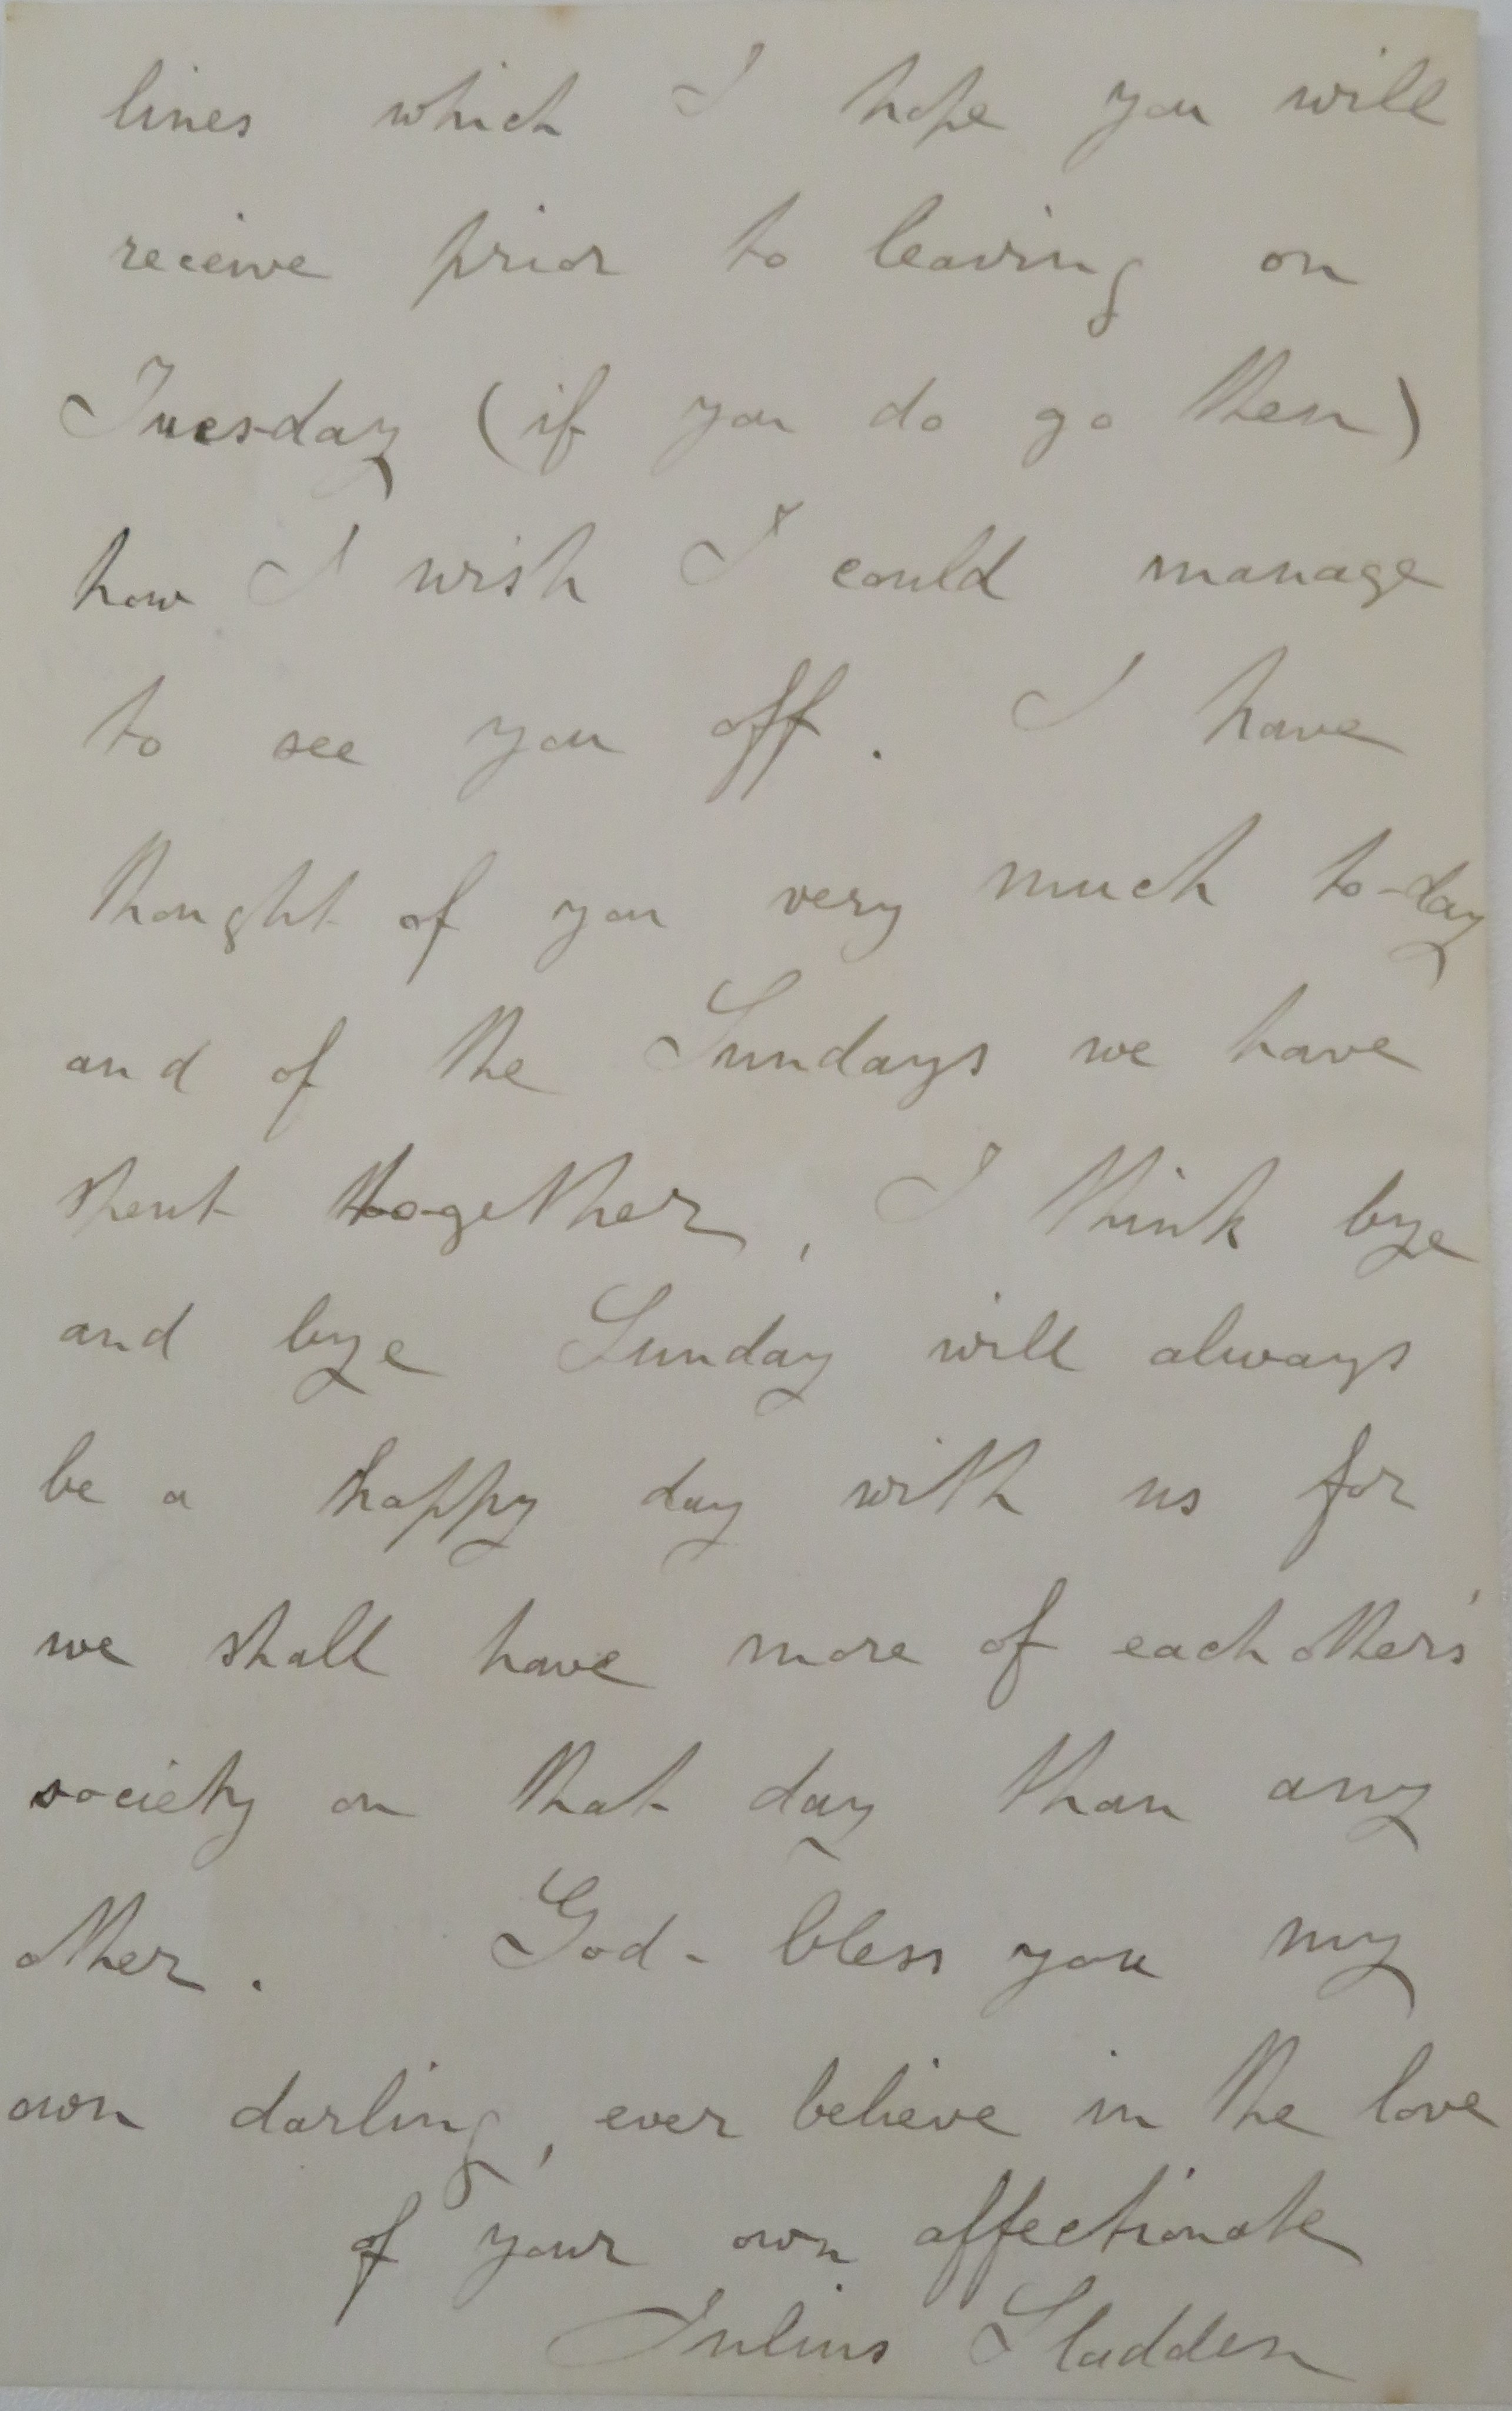 lines which I hope you will
receive prior to leaving on
Tuesday (if you do go then)
how I wish I could manage
to see you off. I have
thought of you very much to-day
and of the Sundays we have
spent together, I think bye
and bye Sunday will always
be a happy day with us for
we shall have more of each others'
society on that day than any
other. God-bless you my
own darling, ever believe in the love
of your own affectionate
Julius Sladden